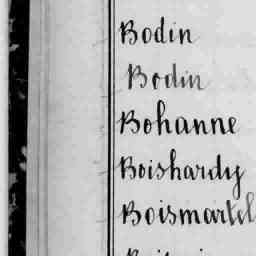 Bodin
Bodin
Bohanne
Boishardy
Boismartel